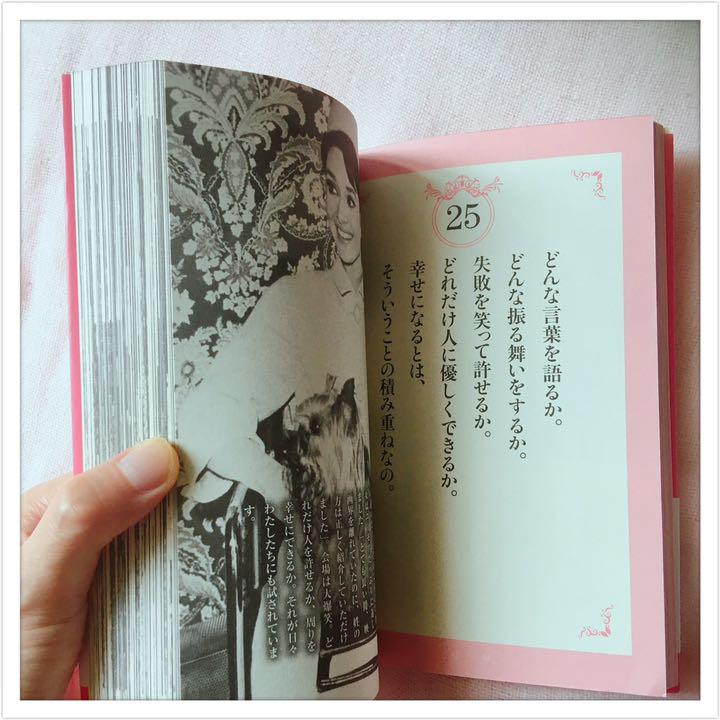 25
どんな言葉を語るか。
どんな振る舞いをするか。
失敗を笑って許せるか。
どれだけ人に優しくできるか。
幸せになるとは、
そういうことの積み重ねなの。
世界を離れていたのに、姓の
方は正しく紹介していただけ
ました」、会場は大爆笑。ど
れだけ人を許せるか、周りを
幸せにできるか。それが日々
わたしたちにも試されていま
す。